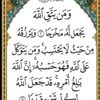 وَمَن يَتَّقِ ٱللَّهَ
يَجْعَل لَّهُۥ مَخْرَجًا ۝ وَيَرْزُقْهُ
مِنْ حَيْثُ لَا يَحْتَسِبُ وَمَن يَتَوَكَّلْ
عَلَى ٱللَّهِ فَهُوَ حَسْبُهُۥٓ إِنَّ ٱللَّهَ
بَـٰلِغُ أَمْرِهِۦ قَدْ جَعَلَ ٱللَّهُ
لِكُلِّ شَىْءٍ قَدْرًا